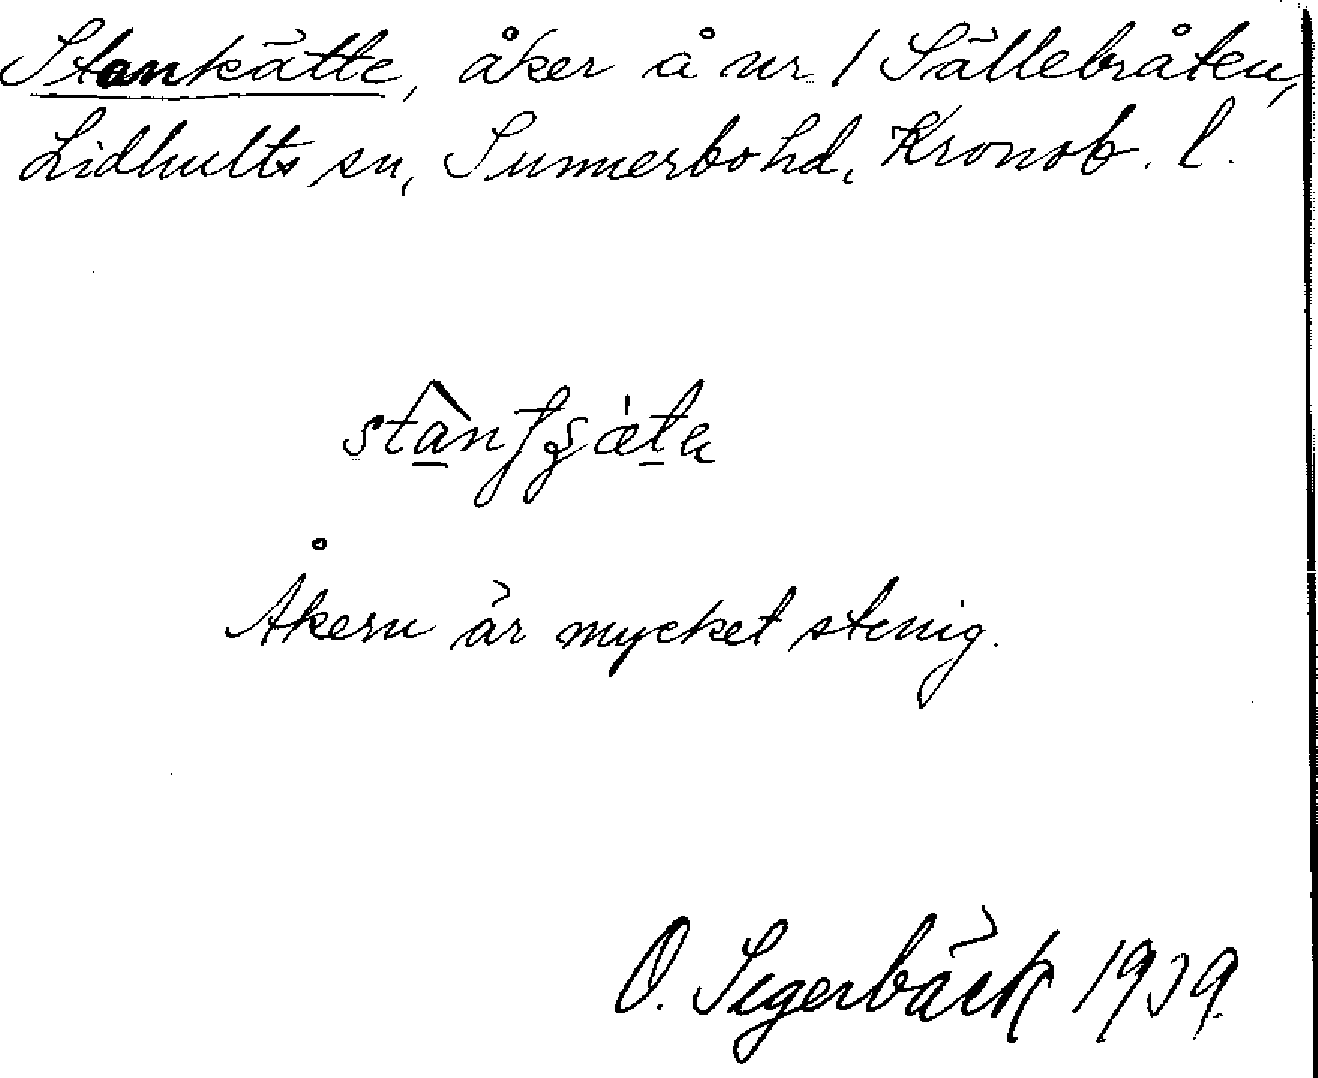 Stankätte, åker å nr 1 Sällebråten,
Lidhults sn, Sunnerbo hd, Kronob. l.
Åkern är mycket stenig.
O. Segerbäck 1939.